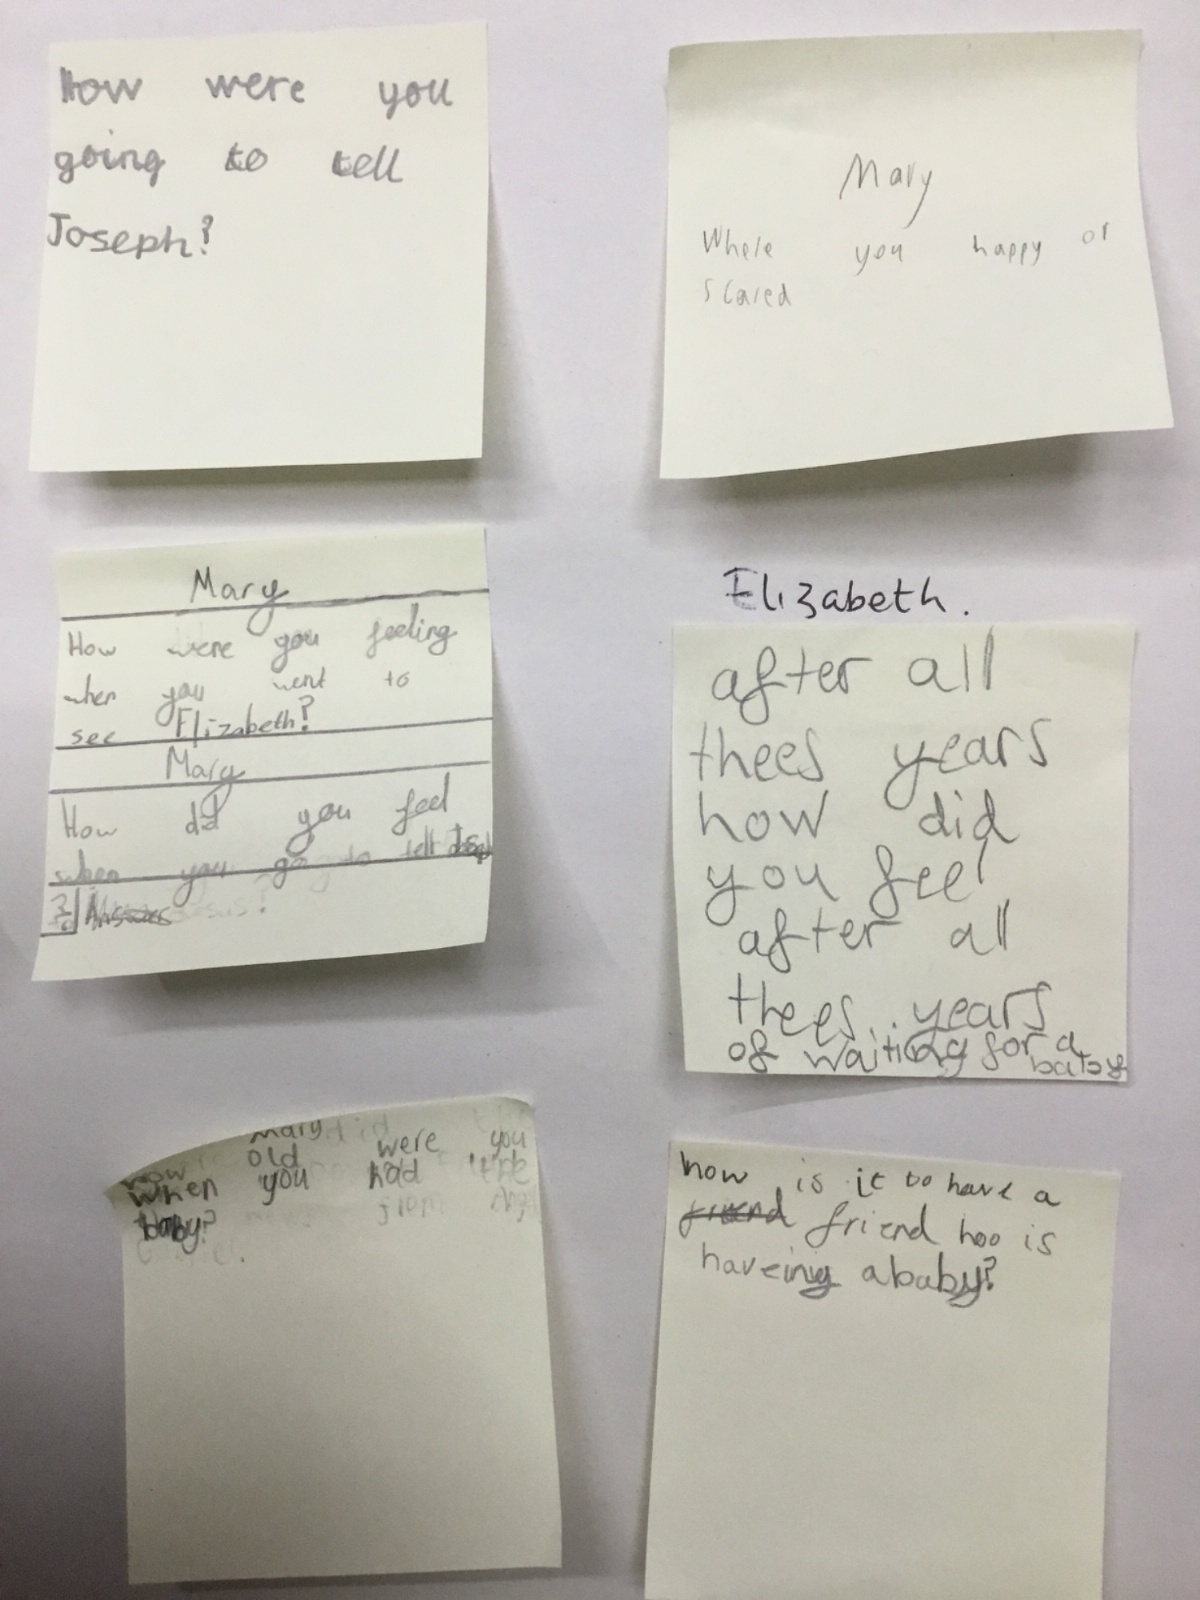 How were you
going to tell
Joseph?
Mary
Where you happy or
scared
Mary
How were you feeling
when you went to
see Elizabeth?
Mary
How did you feel
when you going to tell Joseph
?
Elizabeth.
after all
thees years
how did
you feel
after all
thees years
of waiting for a
baby
Mary
how old were you
when you had the
baby?
how is it to have a
friend friend hoo is
haveing a baby?